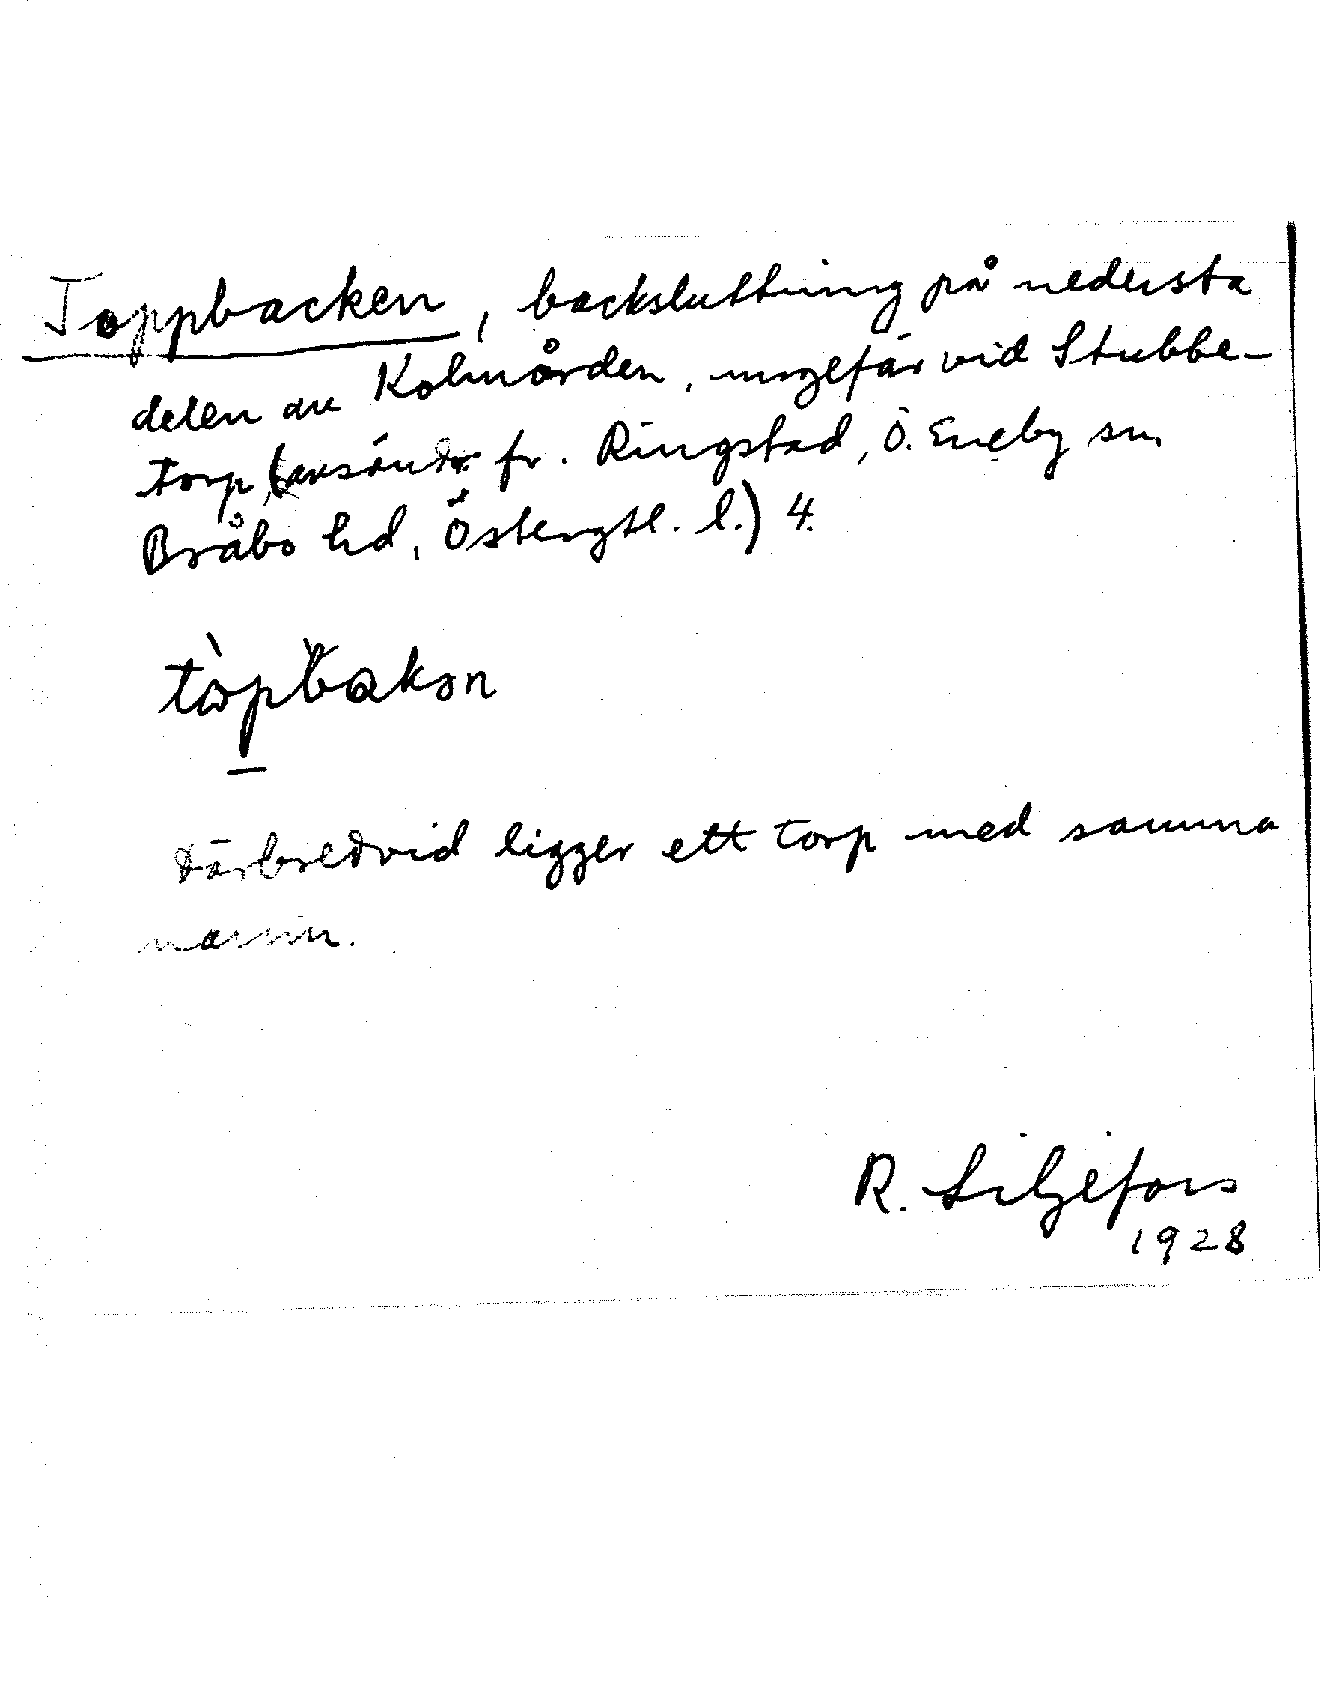 Toppbacken, backsluttning på nedersta
delen av Kolmården, ungefär vid Stubbe-
torp (avsönd. fr. Ringstad, Ö. Eneby sn,
Bråbo hd, Östergtl. l.) 4.
tòpbakən
Därbredvid ligger ett torp med samma
namn.
R. Liljefors
1928